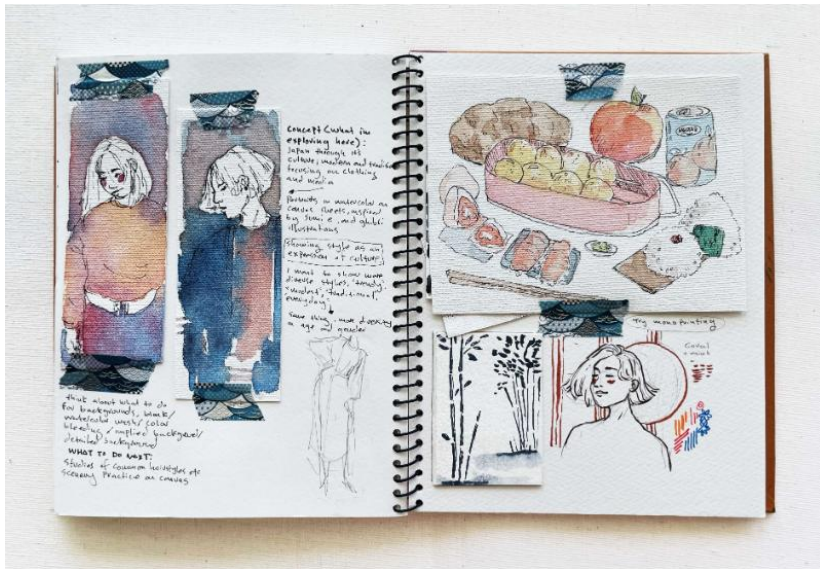 Concept (what im
exploring here):
Japan through its
culture, modern and tradition
focusing on clothing
and media
Portraits in watercolor on
canvas sheets, inspired
by Sumi e, and ghibli
illustrations
Showing style as an
expression of culture
I want to show more
diverse styles, "trendy"
"modest", "traditional",
everyday"
Same thing, more diversity
in age and gender
think about what to do
for backgrounds, blank/
watercolor wash/color
bleeding/implied background/
detailed background
WHAT TO DO NEXT:
Studies of common hairstyles etc
Scenery Practice on canvas
Try monoprinting
Coral